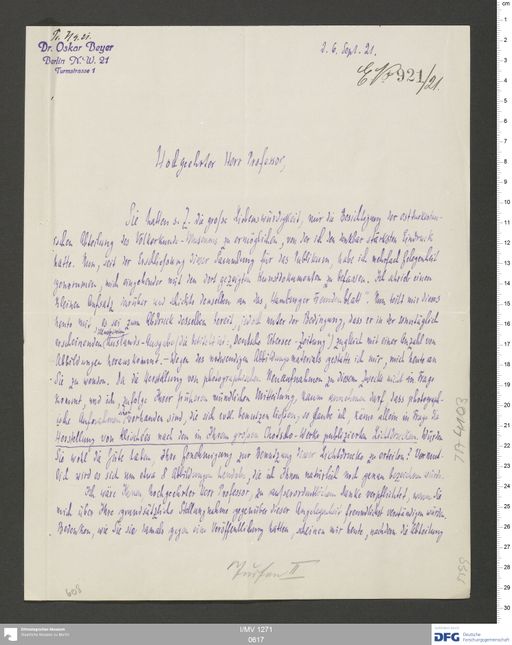 Pr. 7/9.21.
Dr. Oskar Beyer
Berlin N.W. 21
Turmstrasse 1
d. 6. Sept. 21.
E No 921/21.
Hochgeehrter Herr Professor,
Sie hatten s. Z. die große Liebenswürdigkeit, mir die Besichtigung der ostturkistanischen
Abteilung des Völkerkunde-Museums zu ermöglichen, von der ich den denkbar stärksten Eindruck
hatte. Nun, seit der Erschließung dieser Sammlung für das Publikum, habe ich mehrfach Gelegenheit
genommen, mich eingehender mit den dort gezeigten Kunstdokumenten zu befassen. Ich schrieb einen
kleinen Aufsatz darüber und schickte denselben an das "Hamburger Fremdenblatt". Nun teilt mir dieses
heute mit, es sei zum Abdruck desselben bereit, jedoch unter der Bedingung, dass er in der
erscheinenden illustrierten Auslands-Ausgabe (die betitelt ist: "Deutsche Übersee-Zeitung") zugleich mit einer Anzahl von
Abbildungen herauskommt. - Wegen des notwendigen Abbildungsmaterials gestatte ich mir, mich heute an
Sie zu wenden. Da die Herstellung von photographischen Neuaufnahmen zu diesem Zwecke nicht in Frage
kommt, und ich, zufolge Ihrer früheren mündlichen Mitteilung, kaum annehmen darf, dass
Aufnahmen vorhanden sind, die sich evtl. benutzen ließen, so glaube ich, käme allein in Frage die
Herstellung von Klischées nach den in Ihrem großen Chotscho-Werke publizierten Lichtdrucken. Würden
Sie wohl die Güte haben, Ihre Genehmigung zur Benutzung dieser Lichtdrucke zu erteilen?
wird es sich um etwa 8 Abbildungen handeln, die ich Ihnen natürlich noch genau bezeichnen würde.
Ich wäre Ihnen, hochgeehrter Herr Professor, zu außerordentlichem Danke verpflichtet, wenn Sie
mich über Ihre grundsätzliche Stellungnahme gegenüber dieser Angelegenheit freundlichst verständigen würden.
Bedenken, wie Sie sie damals gegen eine Veröffentlichung hatten, scheinen mir heute, nachdem die Abteilung
Turfan II
608
TA 4103
I/MV 1271
0617
Ethnologisches Museum
Staatliche Museen zu Berlin
DFG
Deutsche
Forschungsgemeinschaft